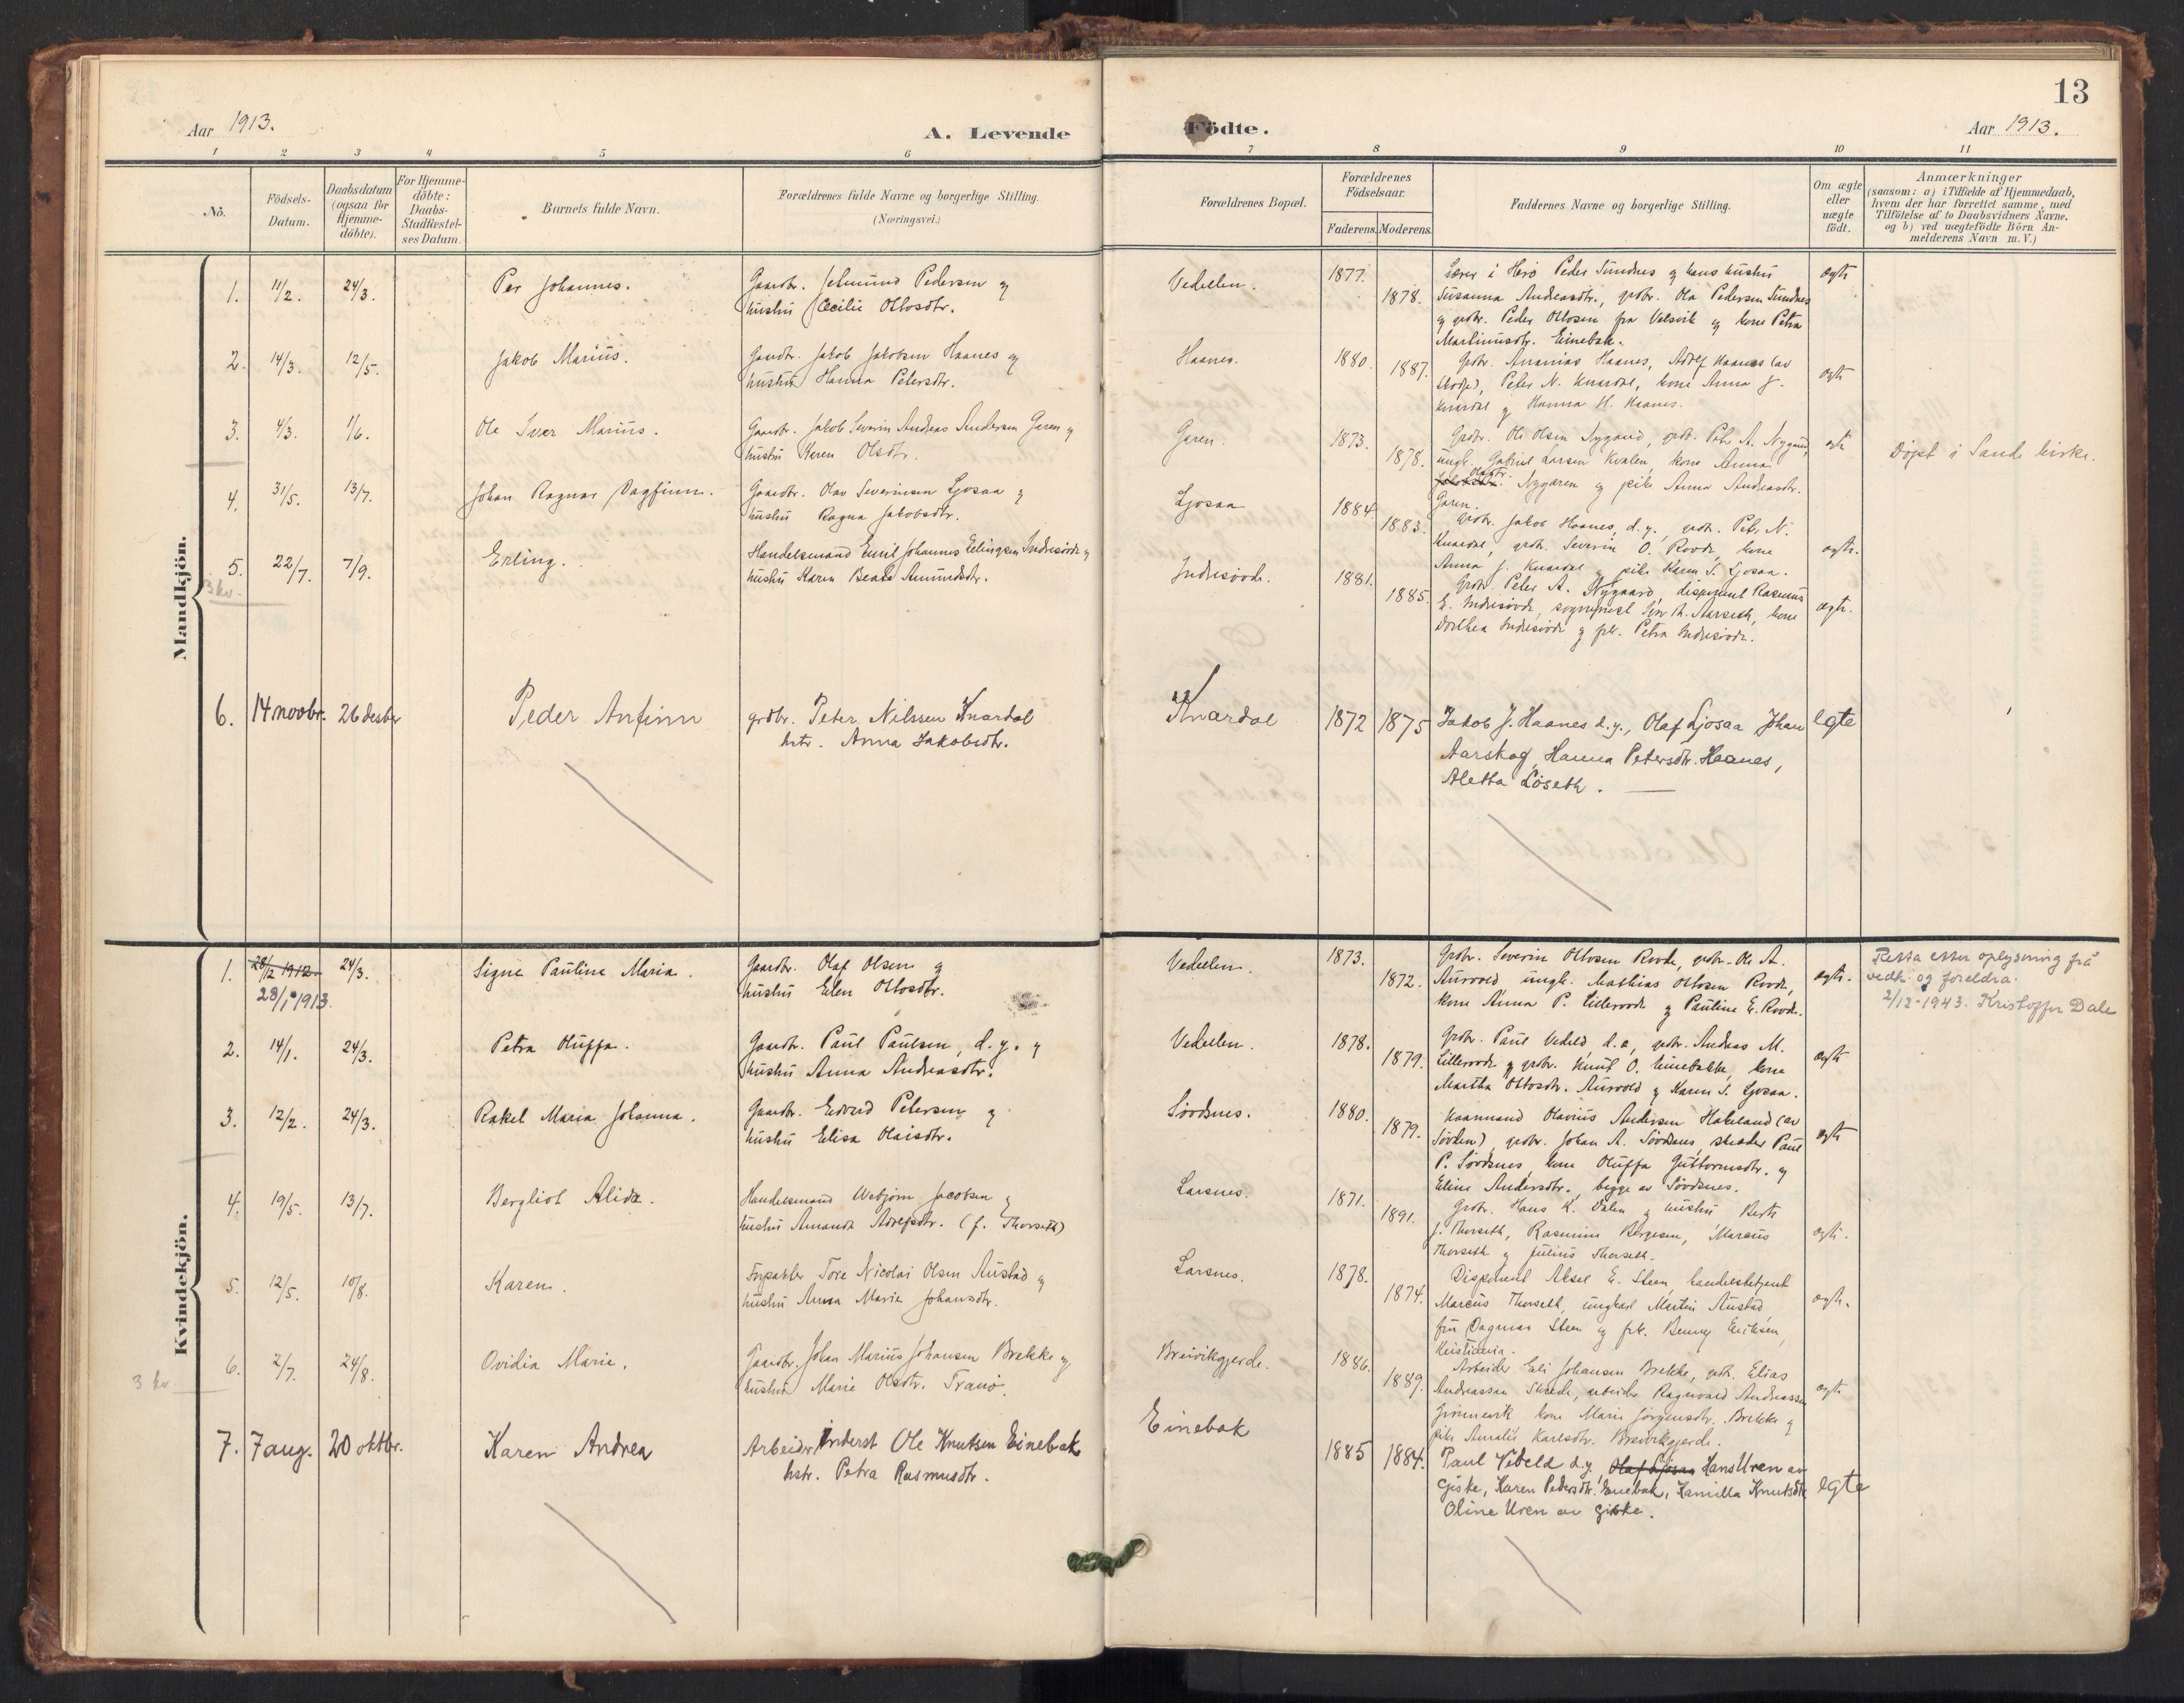 13
Aar 1913.
A. Levende
Födte.
Aar 1913.
1 2 3 4 5 6 7 8 9 10 11
No.
Födsels-
Datum.
Daabsdatum
(ogsaa for
Hjemme-
döbte).
For Hjemme-
döbte:
Daabs-
Stadfæstel-
ses Datum.
Barnets fulde Navn.
Forældrenes fulde Navne og borgerlige Stilling.
(Næringsvei.)
Forældrenes Bopæl.
Forældrenes
Födselsaar.
Faderens. Moderens.
Faddernes Navne og borgerlige Stilling.
Om ægte
eller
uægte
födt.
Anmærkninger
(saasom: a) i Tilfælde af Hjemmedaab,
hvem der har forrettet samme, med
Tilföielse af to Daabsvidners Navne.
og b) ved uægtefödte Börn An-
melderens Navn m. V.)
Mandkjön.
1. 11/2. 24/3. Per Johannes.
Gaardbr. Jetmund Pedersen og
hustru Cecilie Ottosdtr.
Vedelen. 1877. 1878.
Lærer i Herö Peder Sundnes og hans hustru
Susanna Andreasdtr., grdbr. Ola Pedersen Sundnes
og grdbr. Peder Ottosen fra Velsvik og kone Petra
Martinusdtr. Einebak.
ægte
2. 14/3. 12/5. Jakob Marius.
Gaardbr. Jakob Jakobsen Haanes og
hustru Hanna Petersdtr.
Haanes. 1880. 1887.
Grdbr. Ananias Haanes, Adolf Haanes (av
Skodje), Peter N. Knardal, kone Anna J.
Knardal og Hanna H. Haanes.
ægte
3. 4/3. 1/6. Ole Iver Marius.
Gaardbr. Jakob Severin Andreas Andersen Garen og
hustru Karen Olsdtr.
Garen. 1873. 1878.
Grdbr. Ole Olsen Nygaard, grdbr. Petr. A. Nygaard,
ungk. Gabriel Larsen Kvalen, kone Anna
Olasdtr. Nygaren og pike Anna Andreasdtr.
Garen.
ægte
Döpt i Sande kirke.
4. 31/5. 13/7. Johan Ragnar Dagfinn.
Gaardbr. Olav Severinsen Ljosaa og
hustru Ragna Jakobsdtr.
Ljosaa 1884. 1883.
grdbr. Jakob Haanes, d. y., grdbr. Petr. N.
Knardal, grdbr. Severin O. Rovde, kone
Anna J. Knardal og pike Karen S. Ljosaa.
ægte.
5. 22/7. 7/9. Erling.
3 kv.
Handelsmand Emil Johannes Erlingsen Indresövde og
hustru Karen Beate Amundsdtr.
Indresövde. 1881. 1885.
Grdbr. Peter A. Nygaard, disponent Rasmus
E. Indresövde, sogneprest Iver A. Aarseth, kone
Dorthea Indresövde og frk. Petra Indresövde.
ægte.
6. 14 novbr. 26 desbr Peder Anfinn
grdbr. Peter Nilssen Knardal
hstr. Anna Jakobsdtr.
Knardal 1872 1875
Jakob J. Haanes d.y., Olaf Ljosaa Johan
Aarskog, Hanna Petersdtr. Haanes,
Aletta Löseth.
egte
Kvindekjön.
1. 28/12 1912. 24/3. Signe Pauline Maria.
28/1 1913.
Gaardbr. Olaf Olsen og
hustru Elen Ottosdtr.
Vedelen. 1873. 1872.
Grdbr. Severin Ottosen Rovde, grdbr. Ole A.
Aurvold, ungk. Mathias Ottosen Rovde,
kone Anna P. Lillerovde og Pauline E. Rovde.
ægte.
Retta etter oplysning frå
vedk. og foreldra.
2/12-1943. Kristoffer Dale
2. 14/1. 24/3. Petra Oluffa.
Gaardbr. Paul Paulsen, d. y. og
hustru Anna Andreasdtr.
Vedelen. 1878. 1879.
Grdbr. Paul Vedeld, d. e., grdbr. Andreas M.
Lillerovde og grdbr. Knut O. Einebakk, kone
Martha Ottosdtr. Aurvold og Karen S. Ljosaa.
ægte
3. 12/2. 24/3. Rakel Maria Johanna.
Gaardbr. Edvard Petersen og
hustru Elisa Olaisdtr.
Sövdsnes. 1880. 1879.
Kaarmand Olavius Andersen Hakeland (av
Sövden), grdbr. Johan A. Sövdsnes, skræder Paul
P. Sövdsnes, kone Oluffa Guttormsdtr. og
Eline Andersdtr., begge av Sövdsnes.
ægte
4. 19/5. 13/7. Bergliot Alida.
Handelsmand Vebjörn Jacobsen og
hustru Amanda Adolfsdtr. (f. Thorseth)
Larsnes. 1871. 1891.
Grdbr. Hans K. Dalen og hustru Berte
J. Thorseth, Rasmine Börgesen, Marius
Thorseth og Julius Thorseth.
ægte.
5. 12/5. 10/8. Karen.
Forpakter Tore Nicolai Olsen Austad og
hustru Anna Marie Johansdtr.
Larsnes. 1878. 1874.
Disponent Aksel E. Steen, handelsbetjent
Marcus Thorseth, ungkarl Martin Austad
fru Dagmar Steen og frk. Benny Eriksen,
Kristiania.
ægte.
6. 2/7. 24/8. Ovidia Marie.
3 kv.
Gaardbr. Johan Marius Johansen Brekke og
hustru Marie Olsdtr. Tranö.
Breivikgjerde. 1886. 1889.
Arbeider Eli Johansen Brekke, grdbr. Elias
Andreassen Skrede, arbeider Ragnvald Andreassen
kone Marie Jörgensdtr. Brekke og
pike Amalie Karlsdtr. Breivikgjerde.
ægte
7. 7 aug. 20 oktbr. Karen Andrea
Arbeidr, inderst Ole Knutsen Einebak
hstr. Petra Rasmusdtr.
Einebak 1885 1884.
Paul Vedeld d.y., Olaf Ljosaa Hans Uren av
Giske, Karen Pedersdtr. Einebak, Kamilla Knutsdtr
Oline Uren av Giske.
egte